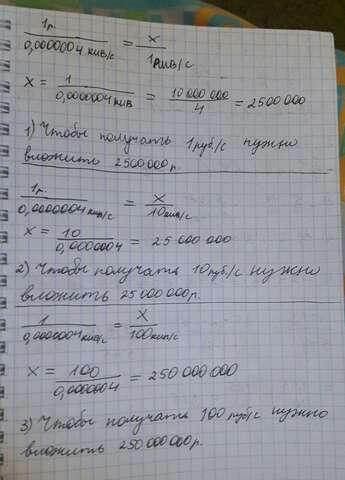 1р. / 0,0000004 кив/с = x / 1 кив/с
x = 1 / 0,0000004 кив = 10 000 000 / 4 = 2500 000
1) Чтобы получать 1 руб./с нужно
вложить 2500 000 р.
1р. / 0,0000004 кив/с = x / 10 кив/с
x = 10 / 0,0000004 = 25 000 000
2) Чтобы получать 10 руб/с нужно
вложить 25 000 000 р.
1 / 0,0000004 кив/с = x / 100 кив/с
x = 100 / 0,0000004 = 250 000 000
3) Чтобы получать 100 руб/с нужно
вложить 250 000 000 р.